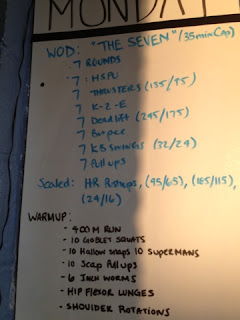 MONDAY
WOD: "THE SEVEN" /35 min Cap)
7 ROUNDS
7 : HSPU
7 THRUSTERS (135/95)
7 K-2-E
7 Deadlift (245/175)
7 Burpee
7 KB SWINGS (32/24)
7 Pull ups
Scaled: HR Pushups, (95/65), (165/115),
(24/16)
WARMUP:
- 400 M RUN
- 10 GOBLET SQUATS
- 10 Hollow Snaps 10 SUPERMANS
- 10 Scap Pull ups
- 6 Inch WORMS
- HIP FLEXOR LUNGES
- SHOULDER ROTATIONS